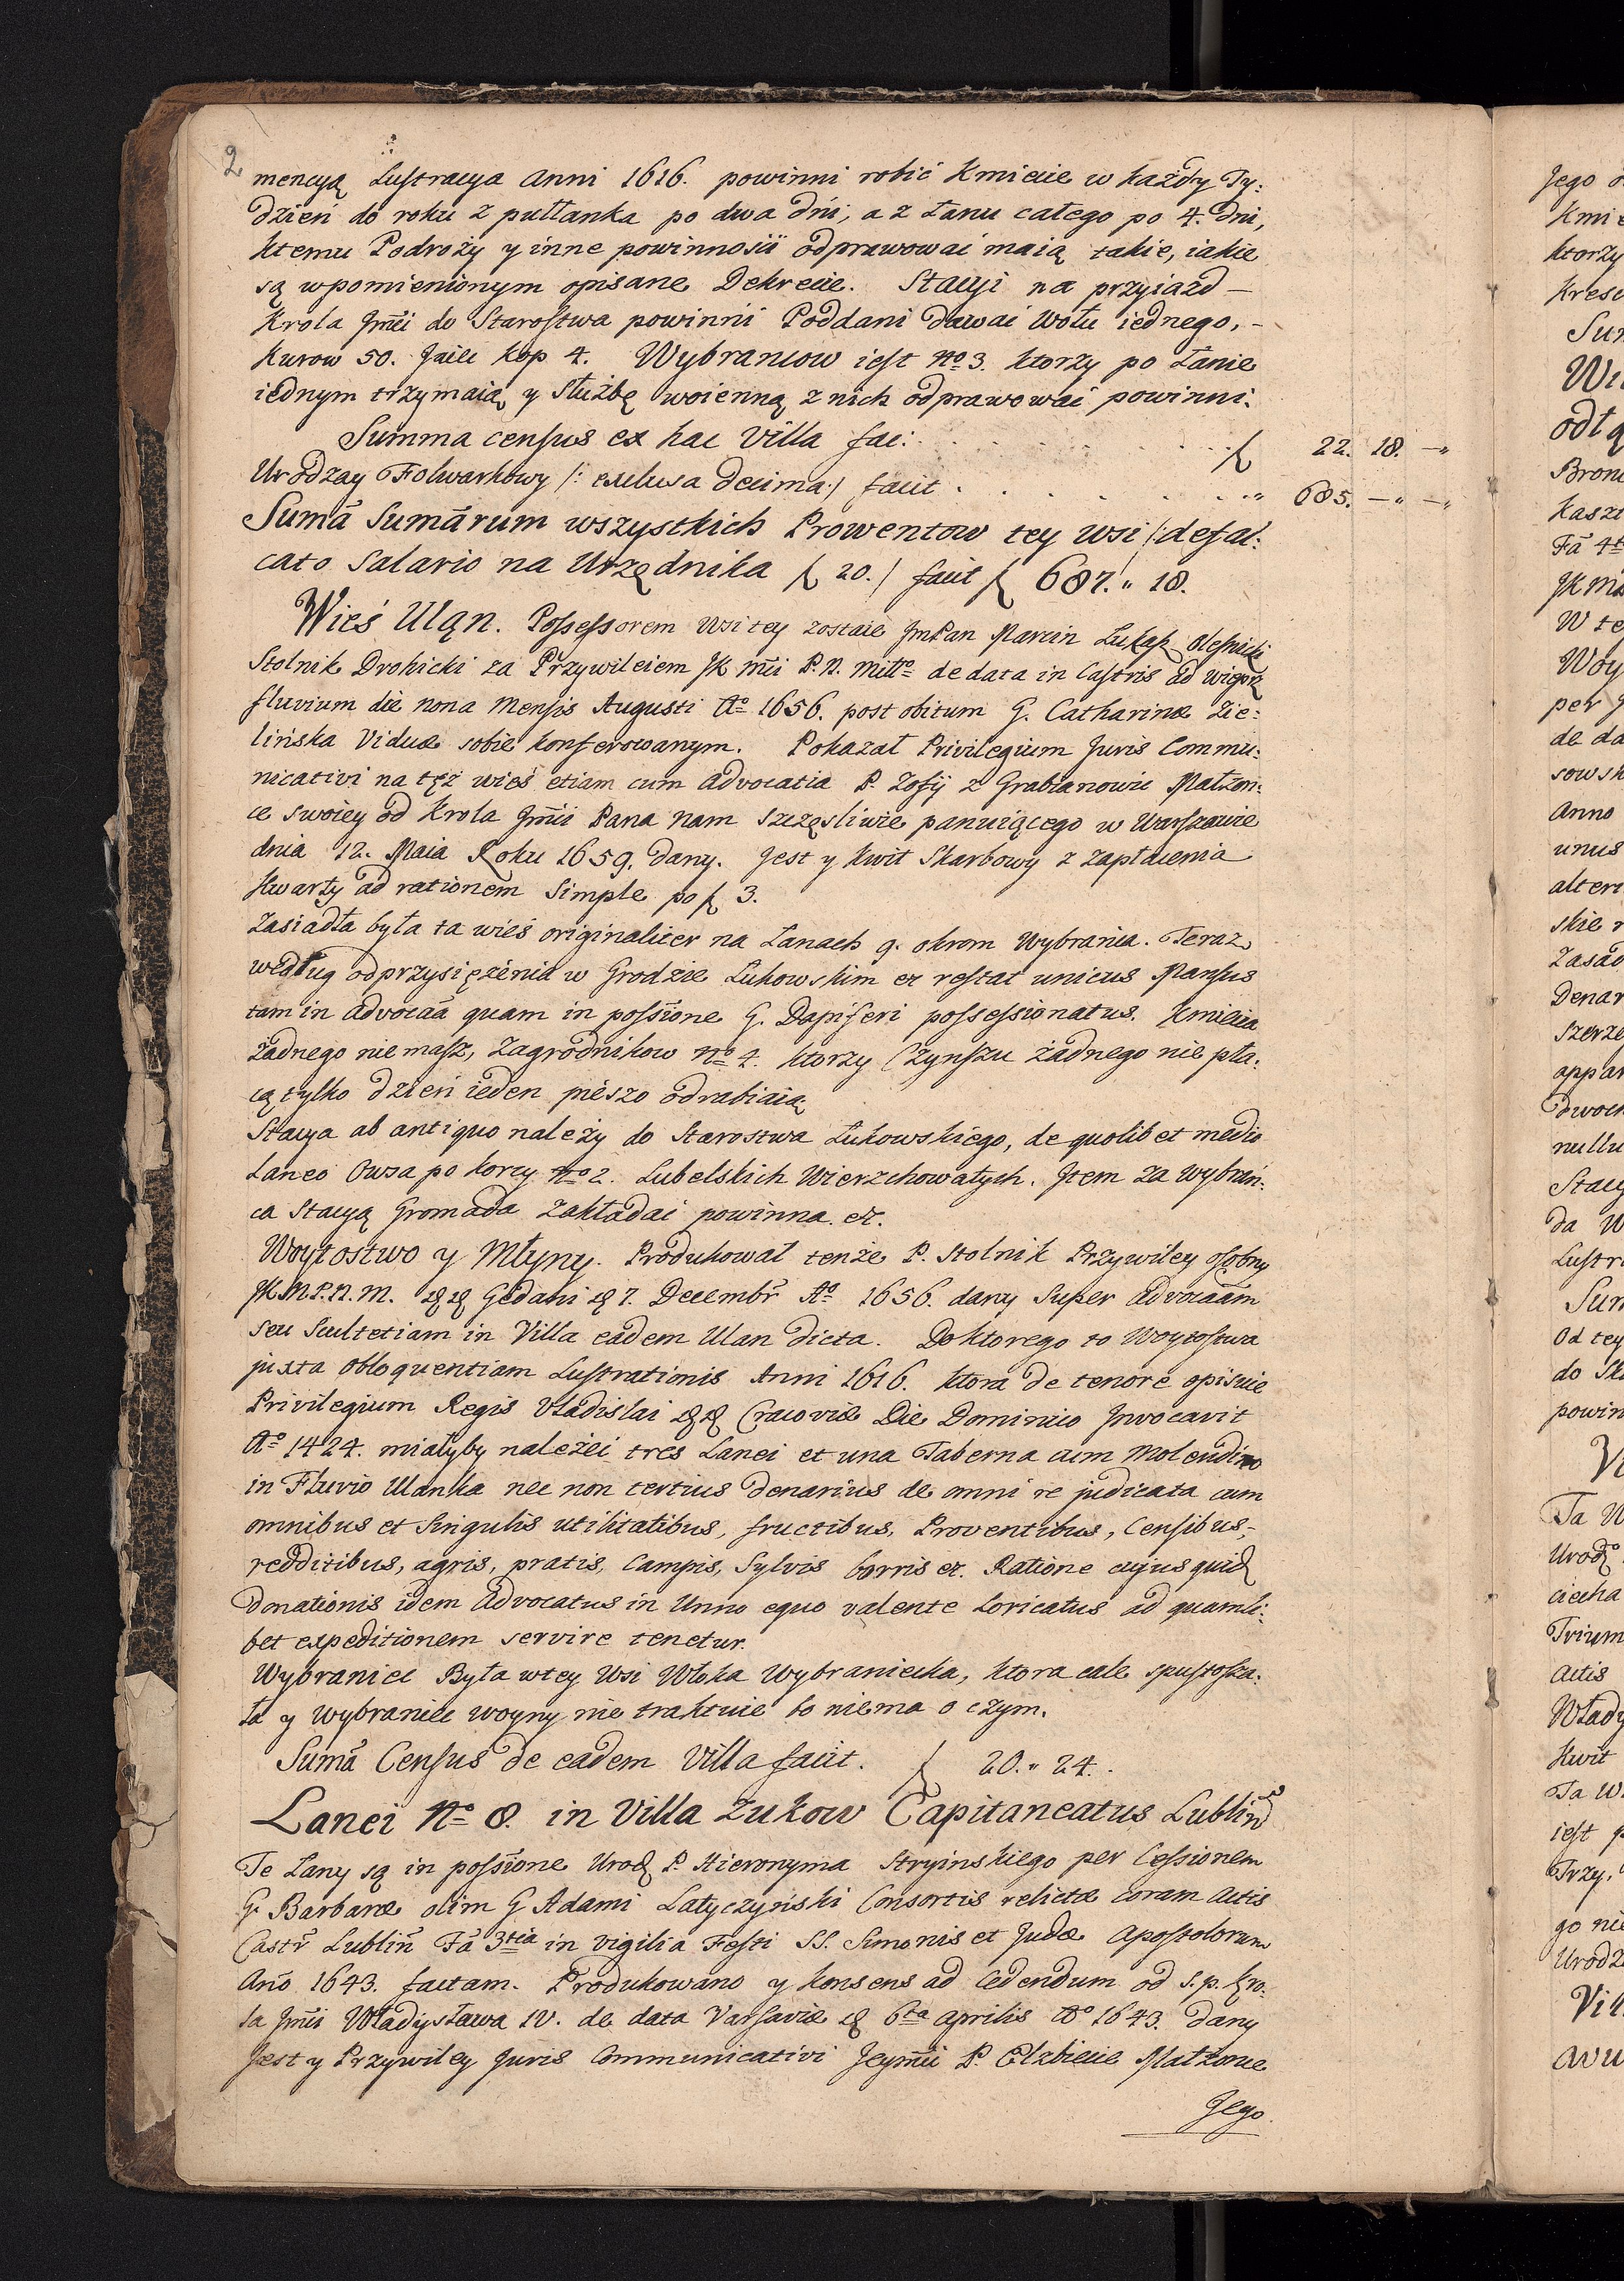 2
mencyą Lustracya Anni 1616. powinni robić Kmiecie w każdy Ty:
dzień do roku z pułłanka po dwa dni, a z Łanu całego po 4. dni,
ktemu Podroży y inne powinności odprawować maią takie, iakie
są wpomienionym opisane Dekrecie. Stacyi na przyiazd —
Krola Jmći do Starostwa powinni Poddani dawać Wołu iednego, -
Kurow 50. Jaiec kop 4. Wybrancow iest No 3. ktorzy po Łanie
iednym trzymaią y Służbę woienną z nich odprawować powinni.
Summa census ex hac Villa fac: . . . . . . . . ƒ 22. 18. —"
Urodzay Folwarkowy /: exclusa decima :/ facit . . . . . . . " 685. —" —"
Sumã Sumãrum wszystkich Prowentow tey wsi /: defal:
cato Salario na Urzędnika ƒ 20. / facit ƒ 687. " 18.
Wieś Uląn. Possessorem wsi tey zostaie JmPan Marcin Lukasz Olesnicki
Stolnik Drohicki za Przywileiem JK Mći P. N. Miłło de data in Castris ad Wigorz
fluvium die nona Mensis Augusti Ao 1656. post obitum G. Catharinæ Zie:
lińska Viduæ sobie konferowanym. Pokazał Privilegium Juris Commu:
nicativi na tęż wieś etiam cum Advocatia P. Zofij z Grabianowic Małżon:
ce swoiey od Krola Jmći Pana nam szczęsliwie panuiącego w Warszawie
dnia 12. Maia Roku 1659. dany. Jest y kwit Skarbowy z zapłacenia
Kwarty ad rationem Simple po ƒ 3.
Zasiadła była ta wieś originaliter na Łanach 9. okrom Wybrańca. Teraz
według odprzysiężenia w Grodzie Łukowskim et restat unicus Mansus
tam in advocãa quam in possione G. Dapiferi possessionatus. Kmiecia
żadnego niemasz, Zagrodnikow No 4. ktorzy Czynszu żadnego nie pła:
cą tylko dzień ieden pieszo odrabiaią
Stacya ab antiquo należy do Starostwa Łukowskiego, de quolibet medio
Laneo Owsa po korcy No 2. Lubelskich Wierzchowatych. Jtem za Wybrań:
ca Stacyą Gromada zakładać powinna. etc.
Woytostwo y Młyny. Produkował tenże P. Stolnik Przywiley osobny
JK M P. N. M. de de Gedani de 7. Decembr Ao 1656. dany Super advocaam
seu Scultetiam in Villa eadem Ulan dicta. Do ktorego to Woytostwa
juxta obloquentiam Lustrationis Anni 1616. ktora de tenore opisuie
Privilegium Regis Vladislai de de Cracoviæ Die Dominico Jnvocavit
Ao 1424. miałyby należeć tres Lanei et una Taberna cum Molendino
in Fluvio Ulanka nec non tertius denarius de omni re judicata cum
omnibus et Singulis utilitatibus, fructibus, Proventibus, Censibus,-
redditibus, agris, pratis, Campis, Sylvis borris etc. Ratione cujus quid
donationis idem Advocatus in Unno equo valente Loricatus ad quamli:
bet expeditionem servire tenetur.
Wybraniec Była wtey Wsi Włoka Wybraniecka, ktora cale spustosza:
ła y Wybraniec woyny nie traktuie bo niema o czym.
Sumã Census de eadem Villa facit. ƒ 20. " 24.
Lanei No 8. in Villa Zukow Capitaneatus Lublin
Te Łany są in possione Urod P. Hieronyma Stryinskiego per Cessionem
G. Barbaræ olim G Adami Latyczyński Consortis relictæ coram Actis
Castr Lublin Fã 3tia in vigilia Festi SS. Simonis et Judæ Apostolorum
Año 1643. factam. Produkowano y konsens ad Cedendum od S. p. Kro:
la Jmći Władysława IV. de data Varsaviæ de 6ta Aprilis Ao 1643. dany
Jest y Przywiley Juris Communicativi Jeymći P. Elzbiecie Małżonce
Jego.